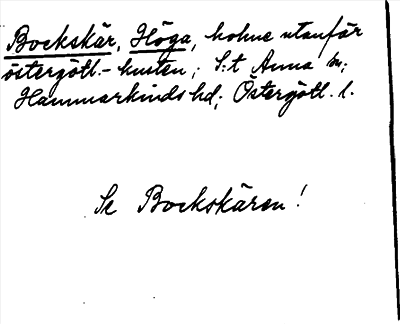 Bockskär, Höga, holme utanför
östergötl.-kusten; S:t Anna sn;
Hammarkinds hd; Östergötl. l.
Se Bockskären!